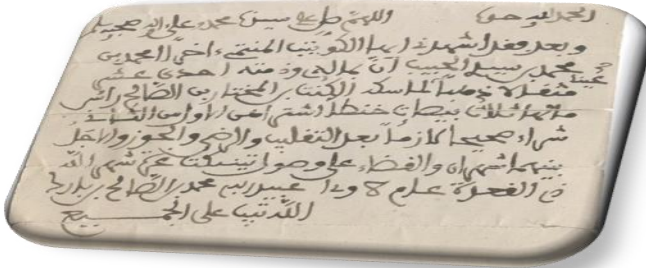 الحمد لله وحده اللهم صل على سيدنا محمد وعلى ءاله وصحبه
وبعد فقد اشهدنا الكويتب المنتمي أخي امحمد بن
محمد بن سيد الحبيب أن بماله وذمته احدى عشر
مثقلا ذهبا لماسكه بن المختار بن الصالح
ثلاث بيصات خنط اشتراهن الاول من الثاني
شراء صحيحا لازما بعد التقليب والرضى والحوز والاجل
بينهما شهران والقضاء على وصول تينبكت غرة شهر الله
ذي القعدة عام عبيد ربه محمد بن الصالح بن
الله على الجميع